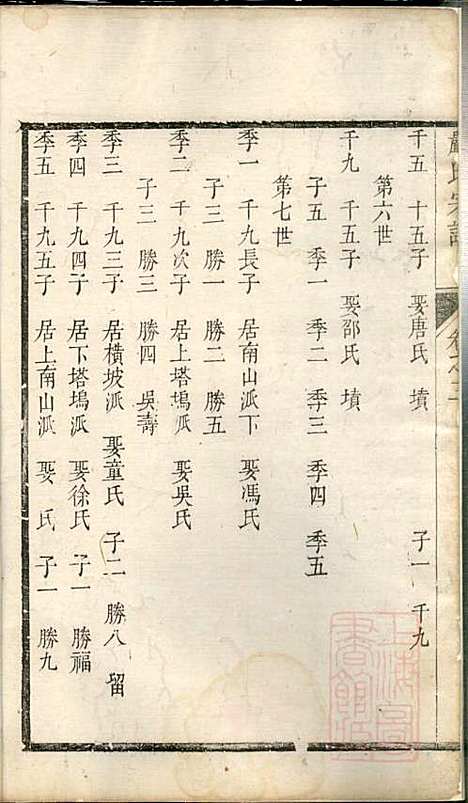 嚴氏宗譜 卷之三
千五 十五子 娶唐氏 墳 子一 千九
第六世
千九 千五子 娶邵氏 墳
子五 季一 季二 季三 季四 季五
第七世
季一 千九長子 居南山派下 娶馮氏
子三 勝一 勝二 勝五
季二 千九次子 居上塔塢派 娶吳氏
子三 勝三 勝四 吳壽
季三 千九三子 居橫坡派 娶童氏 子二 勝八 留
季四 千九四子 居下塔塢派 娶徐氏 子一 勝福
季五 千九五子 居上南山派 娶 氏 子一 勝九
上海圖書館藏